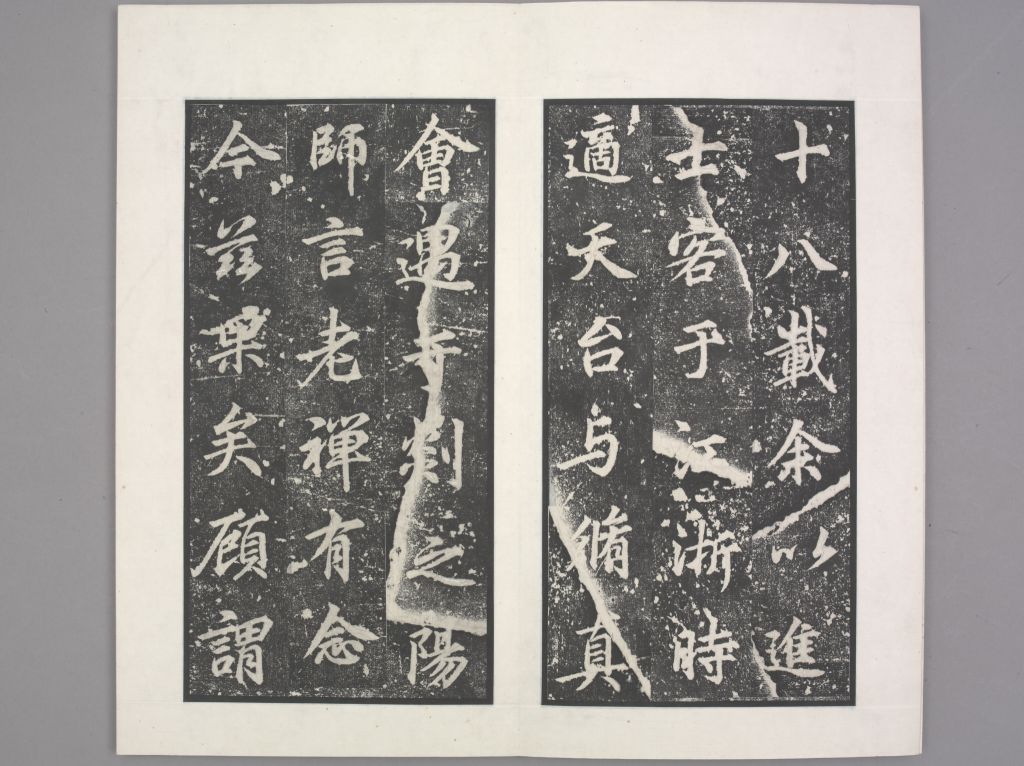 十八載余以進
士客于江浙時
適天台与脩真
會遇于剡之陽
師言老禪有念
今兹果矣顧謂